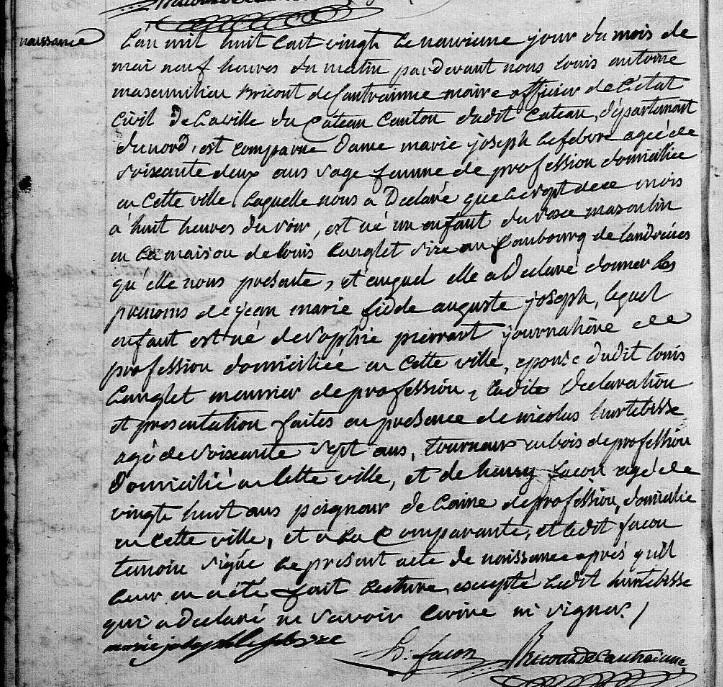 naissance
L'an mil huit cent vingt le neuvieme jour du mois de
mai neuf heures du matin pardevant nous Louis antoine
maximilien Bricout de Cantraine maire officier de l'etat
Civil de la ville du Cateau Canton dudit Cateau, département
du nord, est comparue Dame marie joseph Lefebvre agée de
soixante deux ans sage femme de profession domiciliée
en cette ville, laquelle nous a Declaré que le sept de ce mois
à huit heures du soir, est né un enfant du sexe masculin
en la maison de Louis Langlet sise au faubourg de Landrecies
qu'elle nous presente, et auquel elle a Declaré donner les
prenoms de jean marie fidde auguste joseph, lequel
enfant est né de sophie pierrart journalière de
profession domiciliée en cette ville, epouse dudit louis
Langlet meunier de profession, ladite Declaration
et presentation faites en presence de nicolas hurtebisse
agé de soixante sept ans, tourneur en bois de profession
domicilié en cette ville, et de henry facon agé de
vingt huit ans peigneur de laine de profession, domicilié
en cette ville, et a la Comparante, et ledit facon
temoin signé le present acte de naissance après qu'il
leur en a été fait lecture, excepté ledit hurtebisse
qui a declaré ne savoir ecrire ni signer /
marie joseph lefebvre
h. facon Bricout de Cantraine